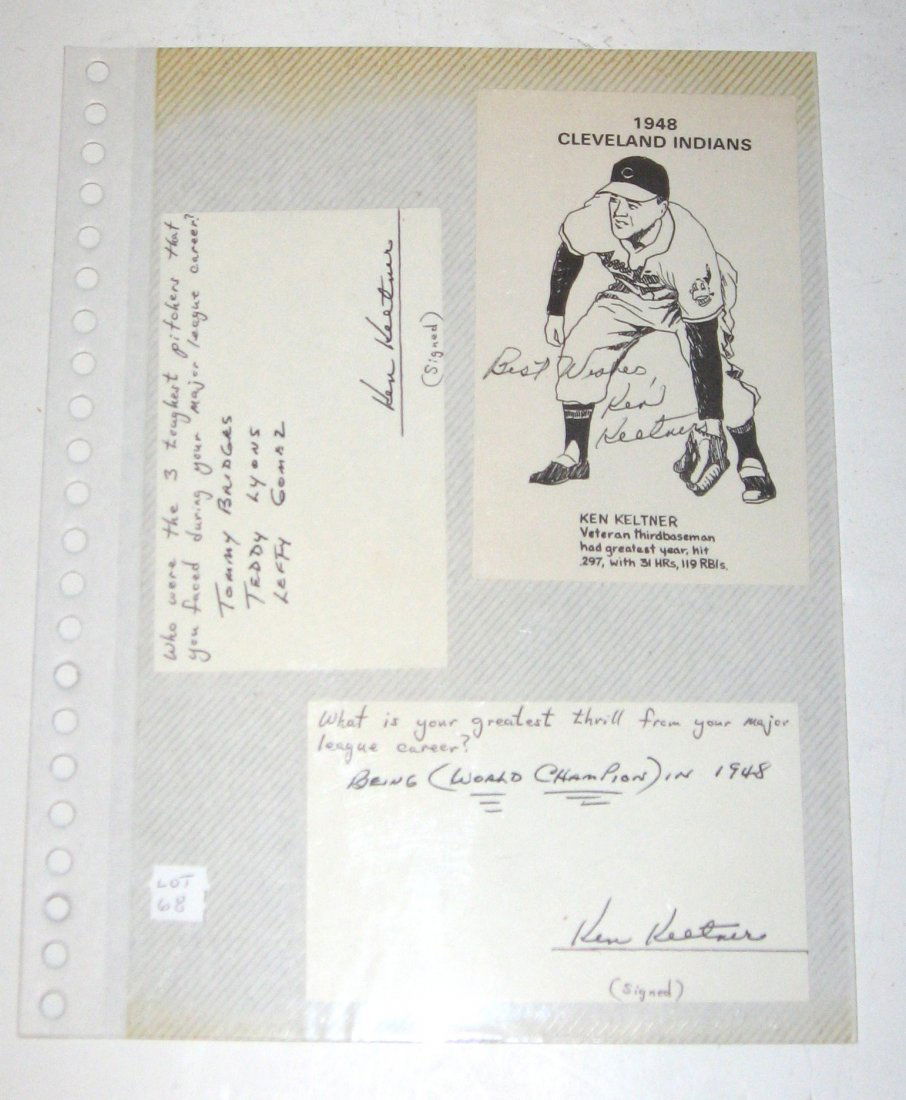 1948
CLEVELAND INDIANS
Best Wishes,
Ken
Keltner
KEN KELTNER
Veteran thirdbaseman
had greatest year, hit
.297, with 31 HRs, 119 RBIs.
Who were the 3 toughest pitchers that
you faced during your major league career?
TOMMY BRIDGES
TEDDY LYONS
LEFTY GOMEZ
Ken Keltner
(Signed)
What is your greatest thrill from your major
league career?
BEING (WORLD CHAMPION) IN 1948
Ken Keltner
(Signed)
LOT
68